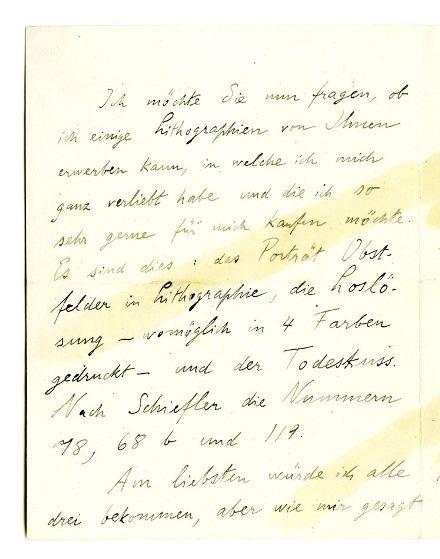 Ich möchte Sie nun fragen, ob
ich einige Lithographien von Ihnen
erwerben kann, in welche ich mich
ganz verliebt habe und die ich so
sehr gerne für mich kaufen möchte.
Es sind dies: das Porträt Obst-
felder in Lithographie, die Loslö-
sung – womöglich in 4 Farben
gedruckt – und der Todeskuss.
Nach Schiefler die Nummern
78, 68 b und 119.
Am liebsten würde ich alle
drei bekommen, aber wie mir gesagt